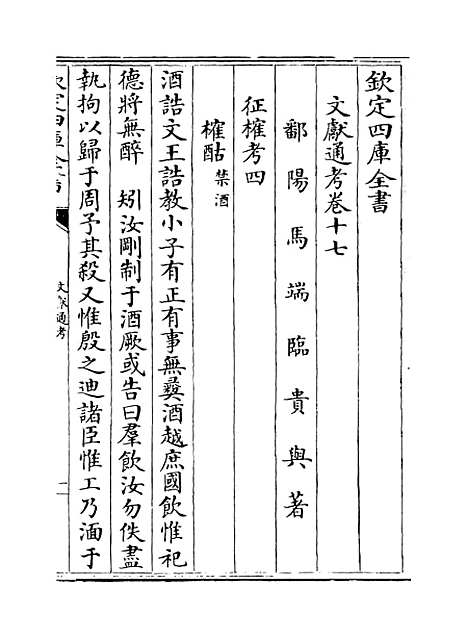 欽定四庫全書
文獻通考卷十七
鄱陽馬端臨貴與著
征榷考四
榷酤禁酒
酒誥文王誥教小子有正有事無彝酒越庶國飲惟祀
德將無醉 矧汝剛制于酒厥或告曰羣飲汝勿佚盡
執拘以歸于周予其殺又惟殷之迪諸臣惟工乃湎于
欽定四庫全書
文獻通考